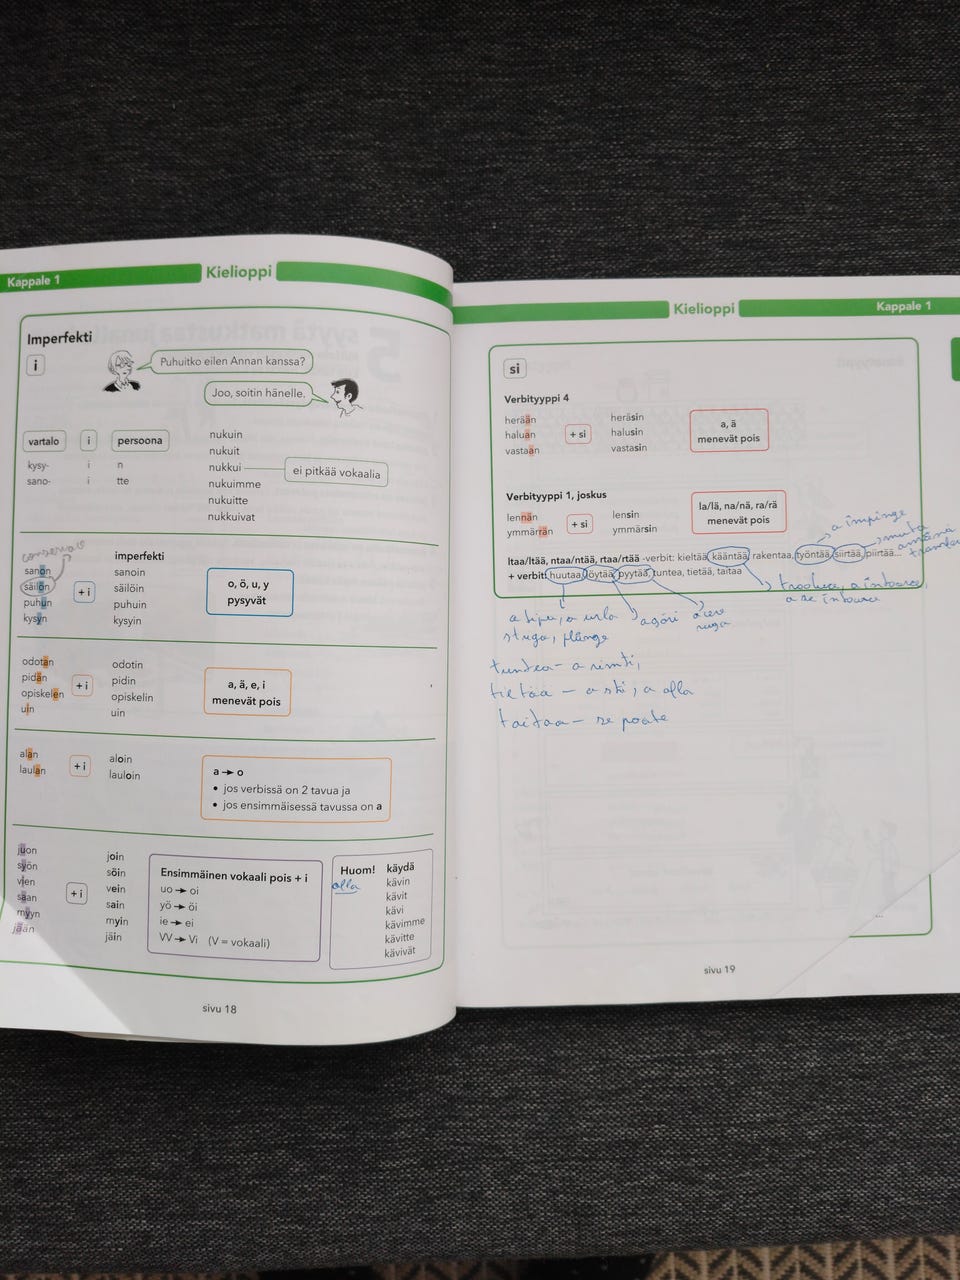 Kappale 1
Kielioppi
Imperfekti
i
Puhuitko eilen Annan kanssa?
Joo, soitin hänelle.
vartalo i persoona
kysy- i n
sano- i tte
nukuin
nukuit
nukkui
nukuimme
nukuitte
nukkuivat
ei pitkää vokaalia
imperfekti
sanon
säilön
puhun
kysyn
+ i
sanoin
säilöin
puhuin
kysyin
o, ö, u, y
pysyvät
odotan
pidän
opiskelen
uin
+ i
odotin
pidin
opiskelin
uin
a, ä, e, i
menevät pois
alan
laulan
+ i
aloin
lauloin
a → o
• jos verbissä on 2 tavua ja
• jos ensimmäisessä tavussa on a
juon
syön
vien
saan
myyn
jään
+ i
join
söin
vein
sain
myin
jäin
Ensimmäinen vokaali pois + i
uo → oi
yö → öi
ie → ei
VV → Vi (V = vokaali)
Huom! käydä
olla
kävin
kävit
kävi
kävimme
kävitte
kävivät
sivu 18
Kielioppi
Kappale 1
si
Verbityyppi 4
herään
haluan
vastaan
+ si
heräsin
halusin
vastasin
a, ä
menevät pois
Verbityyppi 1, joskus
lennän
ymmärrän
+ si
lensin
ymmärsin
la/lä, na/nä, ra/rä
menevät pois
ltaa/ltää, ntaa/ntää, rtaa/rtää -verbit: kieltää, kääntää, rakentaa, työntää, siirtää, piirtää...
+ verbit: huutaa, löytää, pyytää, tuntea, tietää, taitaa
a împinge
muta
a țipa, a urla
striga, plânge
a găsi
a cere
ruga
a se întoarce
tuntea - a simți,
tietää - a ști, a afla
taitaa - se poate
sivu 19